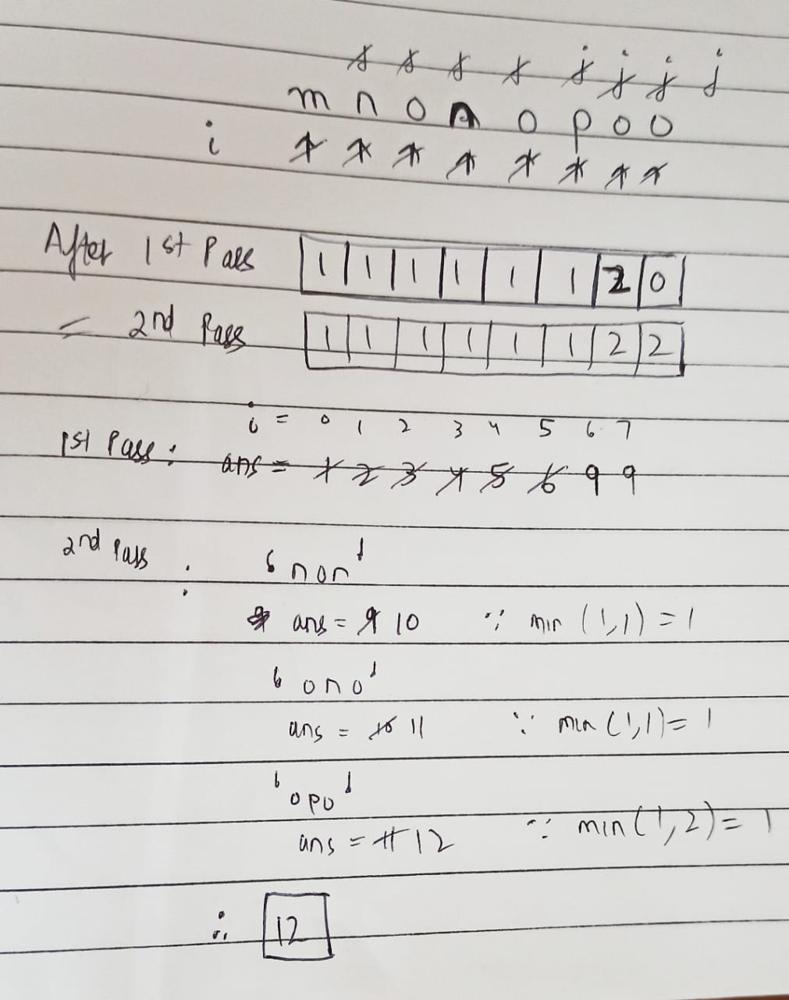 j j j j j j j j
m n o n o p o o
i i i i i i i i i
After 1st Pass 1 1 1 1 1 1 2 0
2nd Pass 1 1 1 1 1 1 2 2
i = 0 1 2 3 4 5 6 7
1st Pass : ans = 1 2 3 4 5 6 9 9
2nd Pass : 'non'
ans = 9 10 ∵ min (1,1) = 1
'ono'
ans = 10 11 ∵ min (1,1) = 1
'opo'
ans = 11 12 ∵ min (1,2) = 1
∴ 12